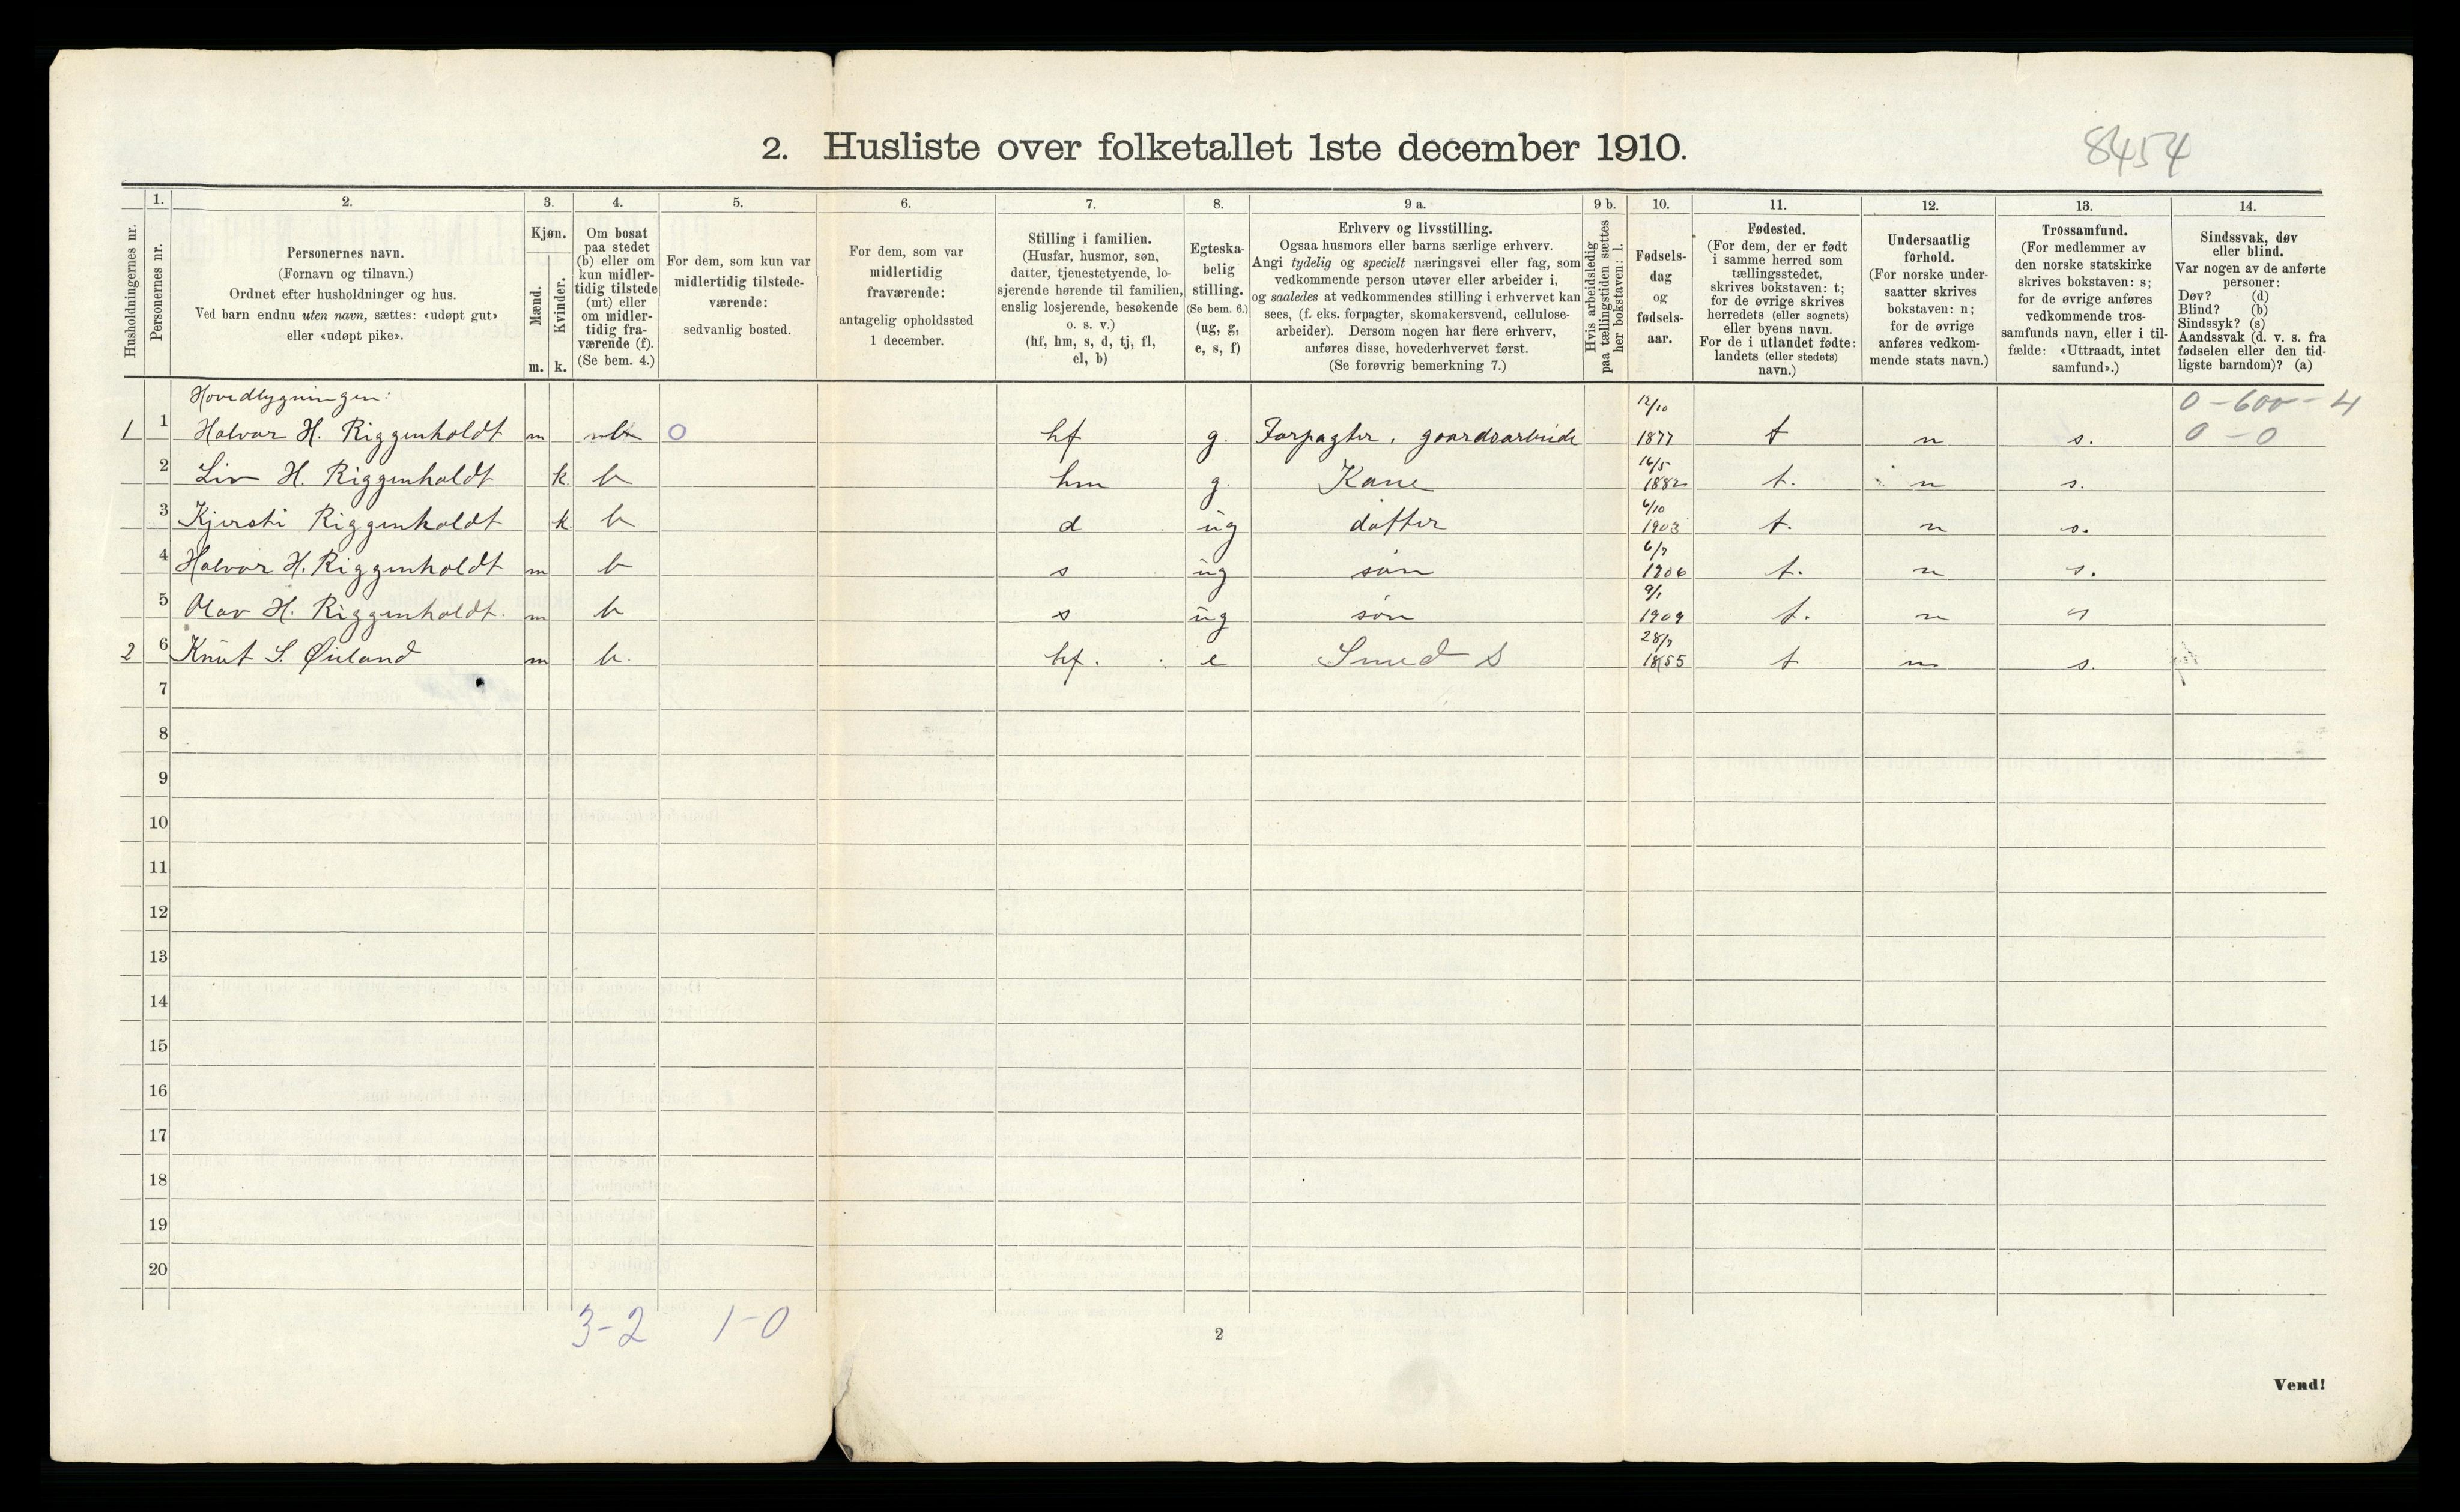 2. Husliste over folketallet 1ste december 1910.
8454
Husholdningernes nr.
1.
Personernes nr.
2.
Personernes navn.
(Fornavn og tilnavn.)
Ordnet efter husholdninger og hus.
Ved barn endnu uten navn, sættes: «udøpt gut»
eller «udøpt pike».
3.
Kjøn.
Mænd.
Kvinder.
m. k.
4.
Om bosat
paa stedet
(b) eller om
kun midler-
tidig tilstede
(mt) eller
om midler-
tidig fra-
værende (f).
(Se bem. 4.)
5.
For dem, som kun var
midlertidig tilstede-
værende:
sedvanlig bosted.
6.
For dem, som var
midlertidig
fraværende:
antagelig opholdssted
1 december.
7.
Stilling i familien.
(Husfar, husmor, søn,
datter, tjenestetyende, lo-
sjerende hørende til familien,
enslig losjerende, besøkende
o. s. v.)
(hf, hm, s, d, tj, fl,
el, b)
8.
Egteska-
belig
stilling.
(Se bem. 6.)
(ug, g,
e, s, f)
9 a.
Erhverv og livsstilling.
Ogsaa husmors eller barns særlige erhverv.
Angi tydelig og specielt næringsvei eller fag, som
vedkommende person utøver eller arbeider i,
og saaledes at vedkommendes stilling i erhvervet kan
sees, (f. eks. forpagter, skomakersvend, cellulose-
arbeider). Dersom nogen har flere erhverv,
anføres disse, hovederhvervet først.
(Se forøvrig bemerkning 7.)
9 b.
Hvis arbeidsledig
paa tællingstiden sættes
her bokstaven: l.
10.
Fødsels-
dag
og
fødsels-
aar.
11.
Fødested.
(For dem, der er født
i samme herred som
tællingsstedet,
skrives bokstaven: t;
for de øvrige skrives
herredets (eller sognets)
eller byens navn.
For de i utlandet fødte:
landets (eller stedets)
navn.)
12.
Undersaatlig
forhold.
(For norske under-
saatter skrives
bokstaven: n;
for de øvrige
anføres vedkom-
mende stats navn.)
13.
Trossamfund.
(For medlemmer av
den norske statskirke
skrives bokstaven: s;
for de øvrige anføres
vedkommende tros-
samfunds navn, eller i til-
fælde: «Uttraadt, intet
samfund».)
14.
Sindssvak, døv
eller blind.
Var nogen av de anførte
personer:
Døv? (d)
Blind? (b)
Sindssyk? (s)
Aandssvak (d. v. s. fra
fødselen eller den tid-
ligste barndom)? (a)
Hovedbygningen: 0-600-4
1 1 Halvor H. Riggenholdt m 0 hf g. Forpagter, gaardsarbeide 12/10 1877 t n s. 0-0
2 Liv H. Riggenholdt k b hm g. Kone 16/5 1882 t. n s.
3 Kjersti Riggenholdt k b d ug datter 6/10 1903 t. n s.
4 Halvor H. Riggenholdt m b s ug søn 6/7 1906 t. n s.
5 Olav H. Riggenholdt. m b s ug søn 9/1 1909 t. n s
2 6 Knut S. Øiland m b. hf. e Smed S 28/7 1855 t n s.
7
8
9
10
11
12
13
14
15
16
17
18
19
20
3-2 1-0
2
Vend!